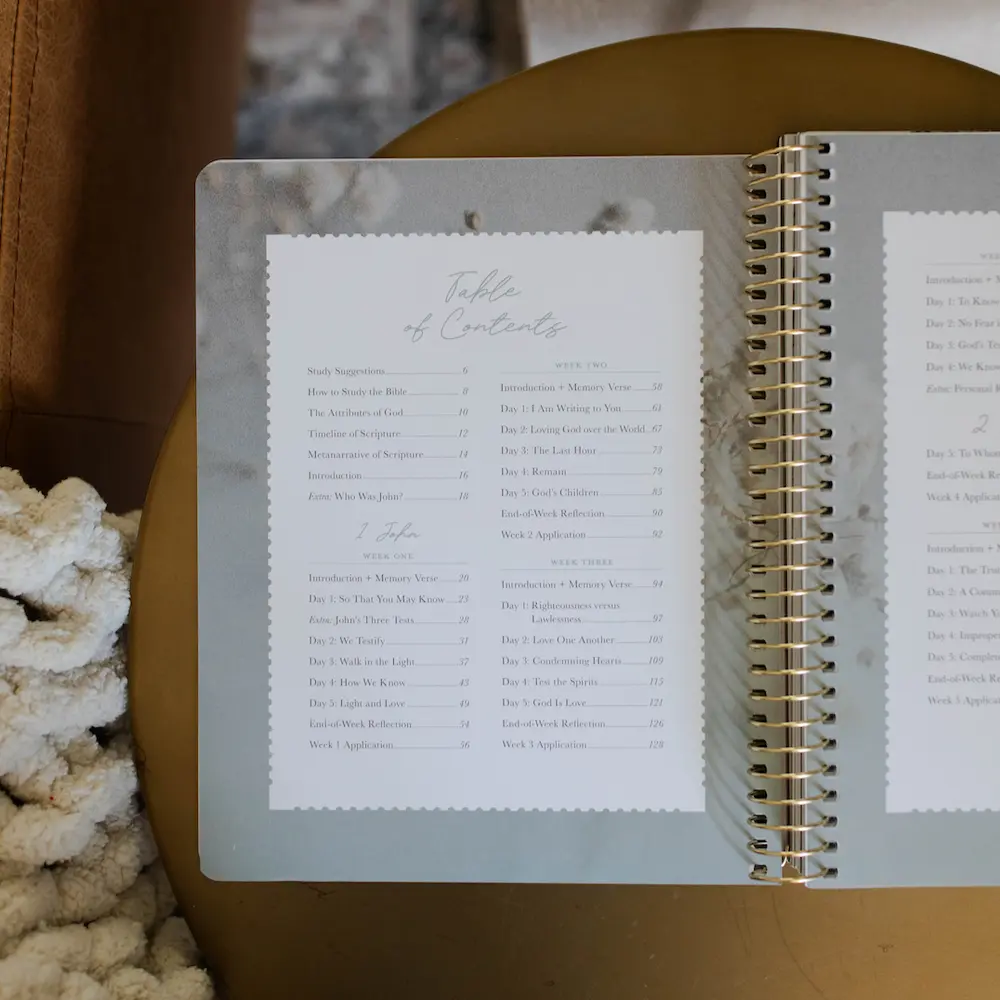 Table
of Contents
Study Suggestions 6
How to Study the Bible 8
The Attributes of God 10
Timeline of Scripture 12
Metanarrative of Scripture 14
Introduction 16
Extra: Who Was John? 18
1 John
WEEK ONE
Introduction + Memory Verse 20
Day 1: So That You May Know 23
Extra: John's Three Tests 28
Day 2: We Testify 31
Day 3: Walk in the Light 37
Day 4: How We Know 43
Day 5: Light and Love 49
End-of-Week Reflection 54
Week 1 Application 56
WEEK TWO
Introduction + Memory Verse 58
Day 1: I Am Writing to You 61
Day 2: Loving God over the World 67
Day 3: The Last Hour 73
Day 4: Remain 79
Day 5: God's Children 85
End-of-Week Reflection 90
Week 2 Application 92
WEEK THREE
Introduction + Memory Verse 94
Day 1: Righteousness versus
Lawlessness 97
Day 2: Love One Another 103
Day 3: Condemning Hearts 109
Day 4: Test the Spirits 115
Day 5: God Is Love 121
End-of-Week Reflection 126
Week 3 Application 128
WE
Introduction + M
Day 1: To Know
Day 2: No Fear i
Day 3: God's Te
Day 4: We Know
Extra: Personal
2
Day 5: To Whom
End-of-Week Re
Week 4 Applicat
WE
Introduction + M
Day 1: The Trut
Day 2: A Comm
Day 3: Watch Yo
Day 4: Improper
Day 5: Complet
End-of-Week Re
Week 5 Applicat